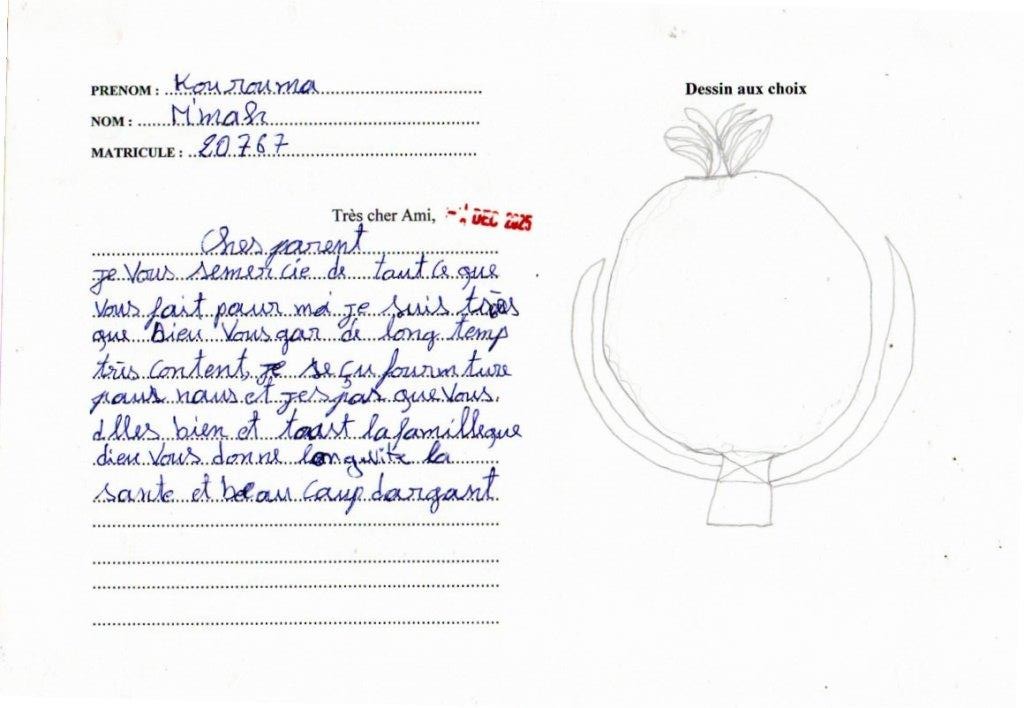 PRENOM : Kourouma
NOM : M'mah
MATRICULE : 20767
Dessin aux choix
Très cher Ami, DEC 2025
Cher parent
je vous remercie de taut ce que
vous fait paur moi je suis très
que Dieu vous gar dé long temp
très content, je se çu fourniture
paur naus et j'espar que vous.
alles bien et taust la famille que
dieu vous donne longuvite la
sante et beau caup d'argant